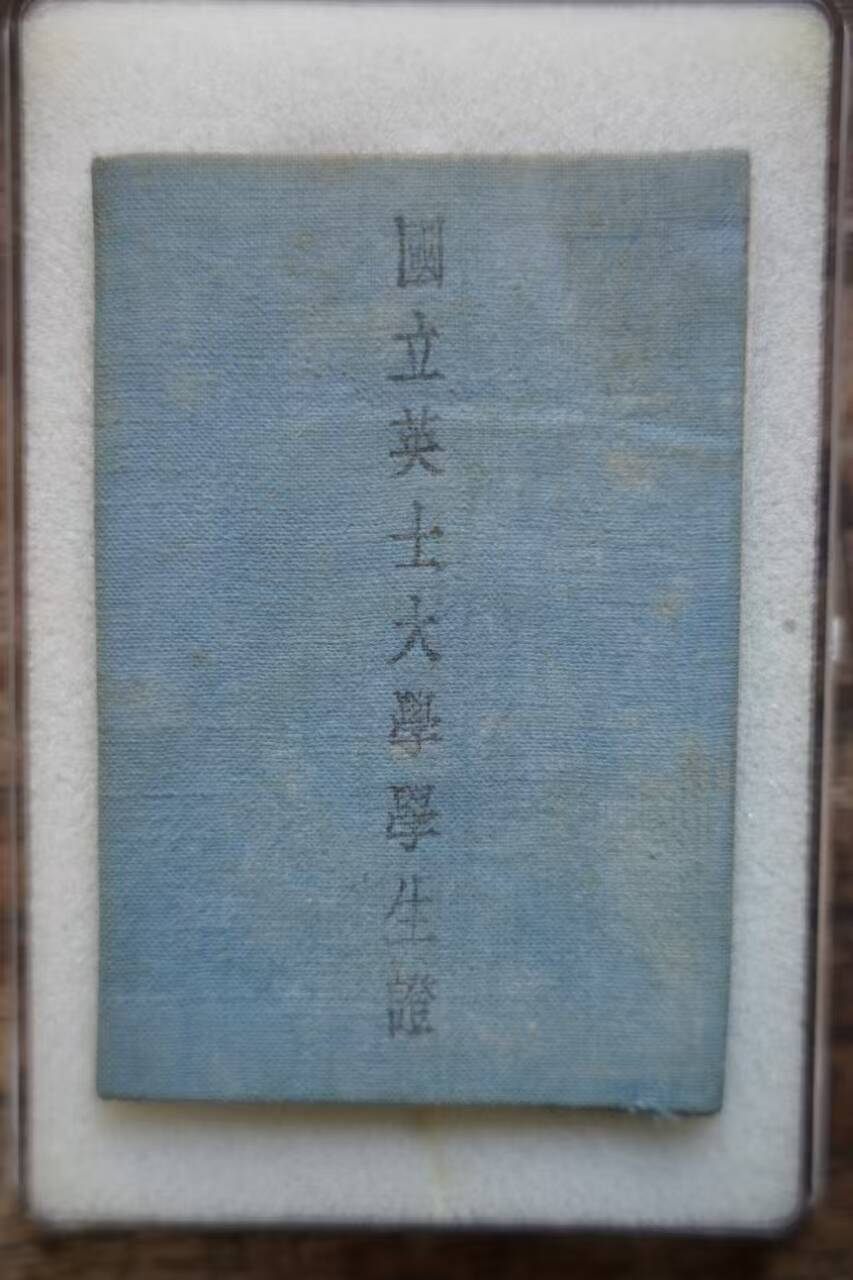 國立英士大學學生證